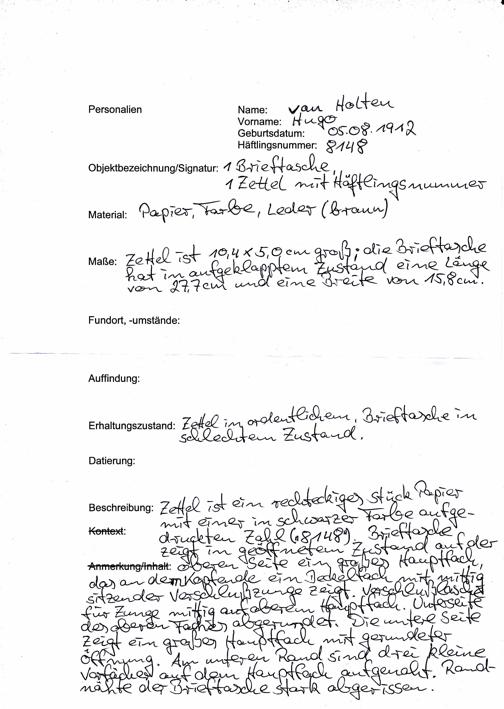 Personalien
Name: van Holten
Vorname: Hugo
Geburtsdatum: 05.08.1912
Häftlingsnummer: 8148
Objektbezeichnung/Signatur: 1 Brieftasche,
1 Zettel mit Häftlingsnummer
Material: Papier, Farbe, Leder (braun)
Maße: Zettel ist 10,4 x 5,0 cm groß; die Brieftasche
hat im aufgeklapptem Zustand eine Länge
von 27,7cm und eine Breite von 15,8cm.
Fundort, -umstände:
Auffindung:
Erhaltungszustand: Zettel in ordentlichem, Brieftasche in
schlechtem Zustand.
Datierung:
Beschreibung: Zettel ist ein rechteckiges Stück Papier
mit einer in schwarzer Farbe aufge-
Kontext: druckten Zahl (8148). Brieftasche
zeigt in geöffnetem Zustand auf der
Anmerkung/Inhalt: oberen Seite ein großes Hauptfach,
das an dem Kopfende ein Deckelfach mit mittig
sitzender Verschlußzunge zeigt. Verschlußlasche
für Zunge mittig auf oberem Hauptfach. Unterseite
des oberen Faches abgerundet. Die untere Seite
zeigt ein großes Hauptfach mit gerundeter
Öffnung. Am unteren Rand sind drei kleine
Vorfächer auf dem Hauptfach aufgenäht. Rand-
nähte der Brieftasche stark abgerissen.